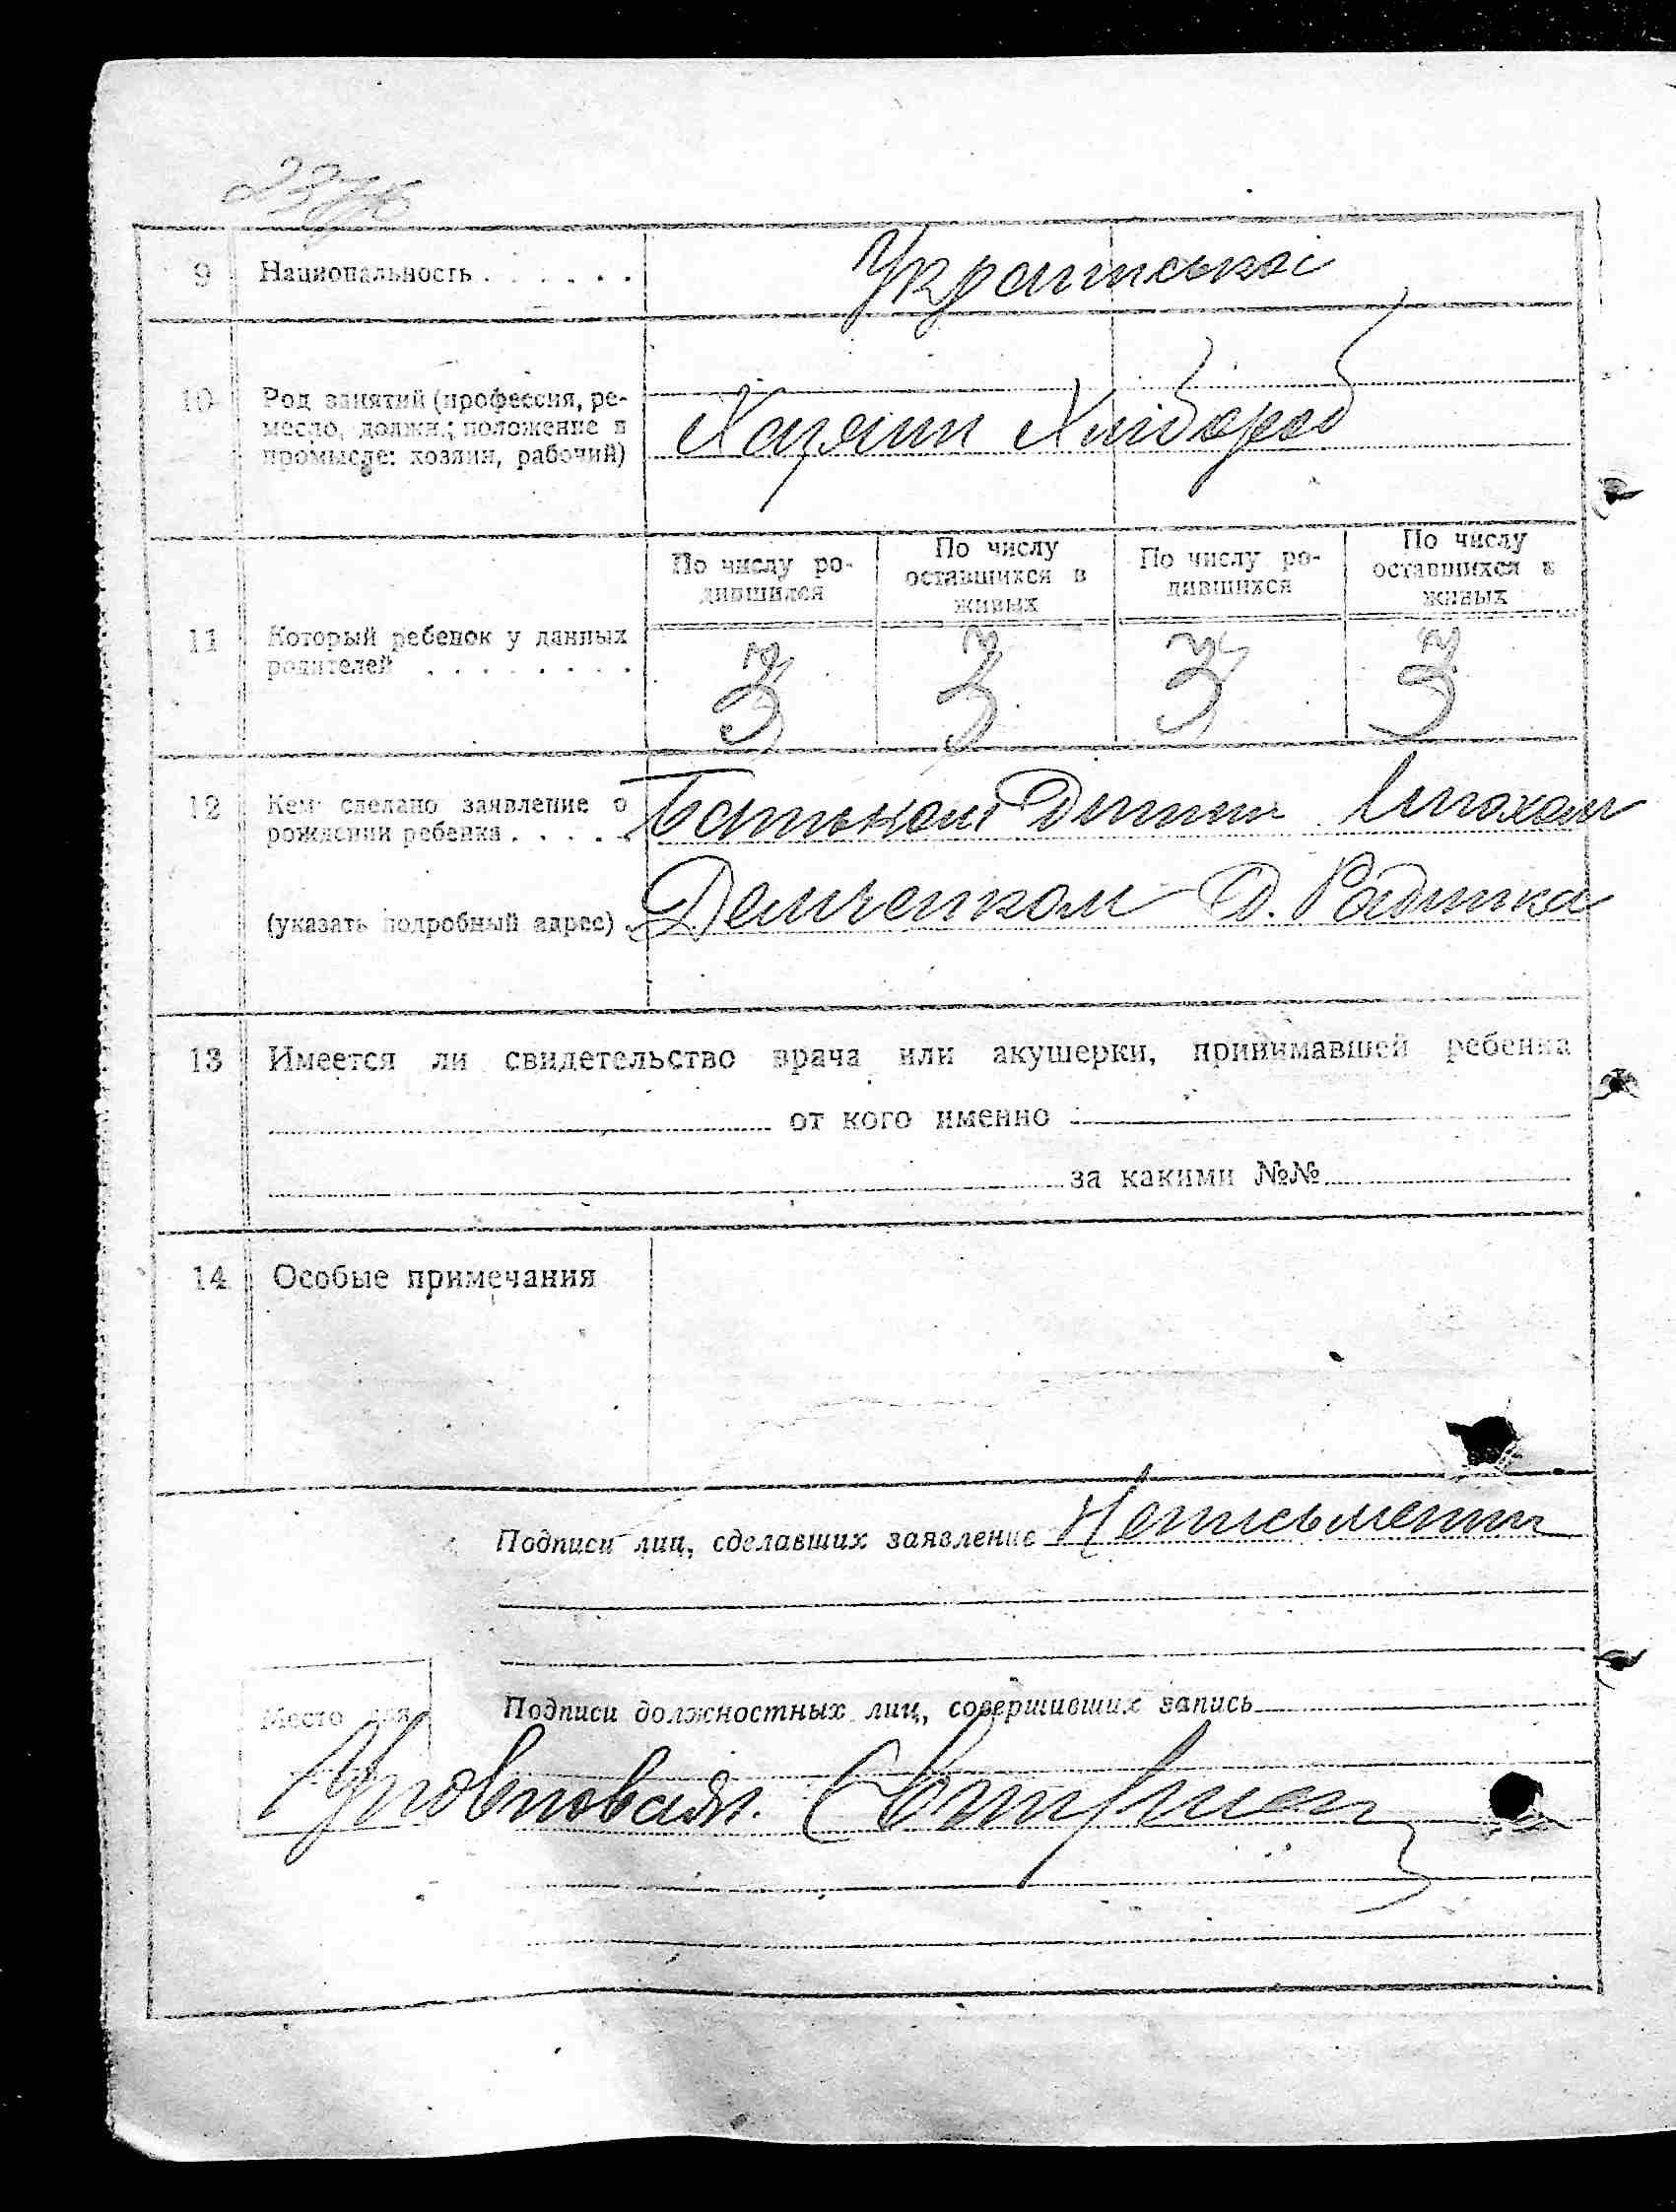 9 Национальность . . . . . . Українська
10 Род занятий (профессия, ре-
месло, должн.; положение в
промысле: хозяин, рабочий)
Хазяин Хлібороб
По числу ро-
дившихся
По числу
оставшихся в
живых
По числу ро-
дившихся
По числу
оставшихся в
живых
11 Который ребенок у данных
родителей . . . . . . . .
3 3 3 3
12 Кем сделано заявление о
рождении ребенка . . . . .
Батьком Дитини
(указать подробный адрес)
Демченком Д. Радинка
13 Имеется ли свидетельство врача или акушерки, принимавшей ребенка
от кого именно
за какими №№
14 Особые примечания
Подписи лиц, сделавших заявление Неписьменни
Подписи должностных лиц, совершивших запись
Место для